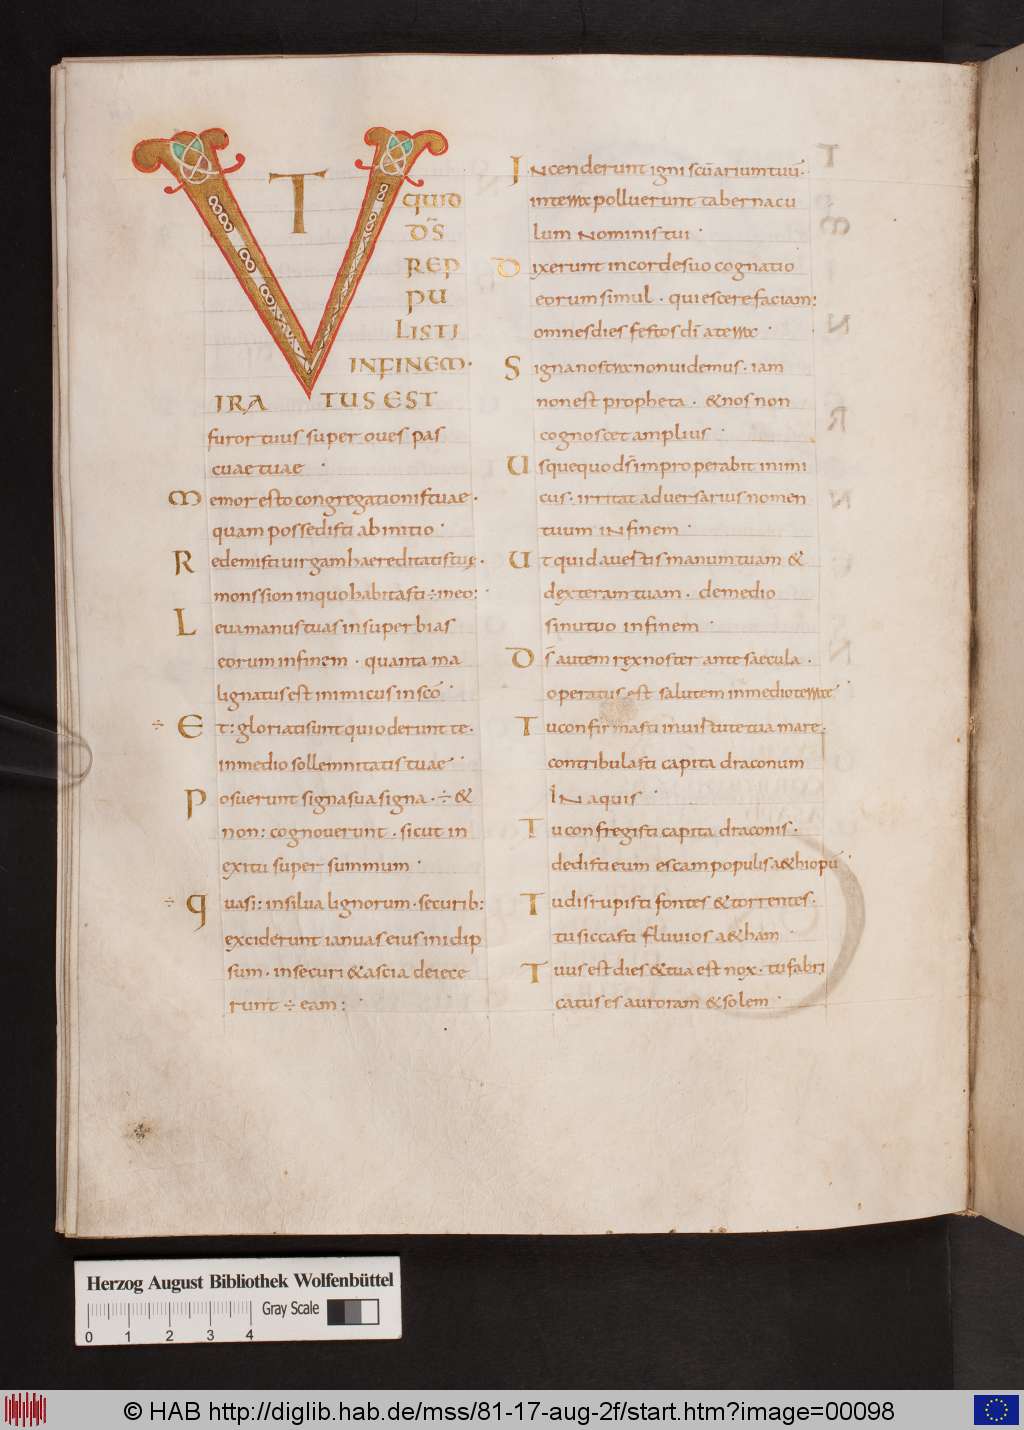 UT QUID
D̄S
REP
PU
LISTI
INFINEM·
IRATUS EST
furor tuus super oves pas
cuae tuae ·
Memor esto congregationis tuae·
quam possedisti ab initio·
Redemisti virgam haereditatis tuę·
mons sion in quo habitasti ÷ in eo:
Leva manus tuas in superbias
eorum in finem · quanta ma
lignatus est inimicus in sc̄o·
÷ Et: gloriati sunt qui oderunt te·
in medio sollemnitatis tuae·
Posuerunt signa sua signa · ÷ &
non: cognoverunt · sicut in
exitu super summum·
÷ Quasi: in silva lignorum· securib:
exciderunt ianuas eius in idip
sum· in securi & ascia deiece
runt ÷ eam:·
Incenderunt igni sc̄uarium tuū·
in terra polluerunt tabernacu
lum nominis tui·
Dixerunt in corde suo cognatio
eorum simul · quiescere faciam:
omnes dies festos dī a terra·
Signa nostra non videmus · iam
non est propheta · & nos non
cognoscet amplius·
Usquequo d̄s improperabit inimi
cus: irritat adversarius nomen
tuum in finem·
Ut quid avertis manum tuam &
dexteram tuam · de medio
sinu tuo in finem·
D̄s autem rex noster ante saecula·
operatus est salutem in medio terrae·
Tu confirmasti in virtute tua mare:
contribulasti capita draconum
in aquis·
Tu confregisti capita draconis·
dedisti eum escam populis aethiopū·
Tu disrupisti fontes & torrentes·
tu siccasti fluvios aetham·
Tuus est dies & tua est nox· tu fabri
catus es auroram & solem·
Herzog August Bibliothek Wolfenbüttel
Gray Scale
0 1 2 3 4
© HAB http://diglib.hab.de/mss/81-17-aug-2f/start.htm?image=00098